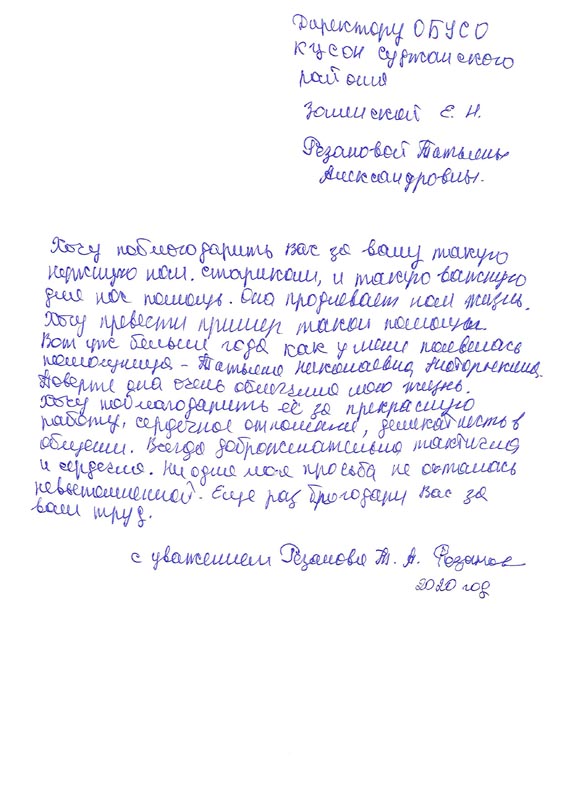 Директору ОБУСО
КЦСОН Суджанского
района
Е. Н.
Резановой Татьяны
Александровны.
Хочу поблогодарить Вас за вашу такую
нужную нам. старикам, и такую важную
для нас помощь. Она продлевает нам жизнь.
Хочу превести пример такой помощи.
Вот уже больше года как у меня появилась
помощница - Татьяна Николаевна
Поверте она очень облегчила мою жизнь.
Хочу поблагодарить её за прекрасную
работу, сердечное отношение, деликатность в
общении. Всегда доброжелательна тактична
и сердечна. Ни одна моя просьба не осталась
невыполненной. Еще раз блогодарю Вас за
ваш труд.
с уважением Резанова Т. А. Резанов
2020 год